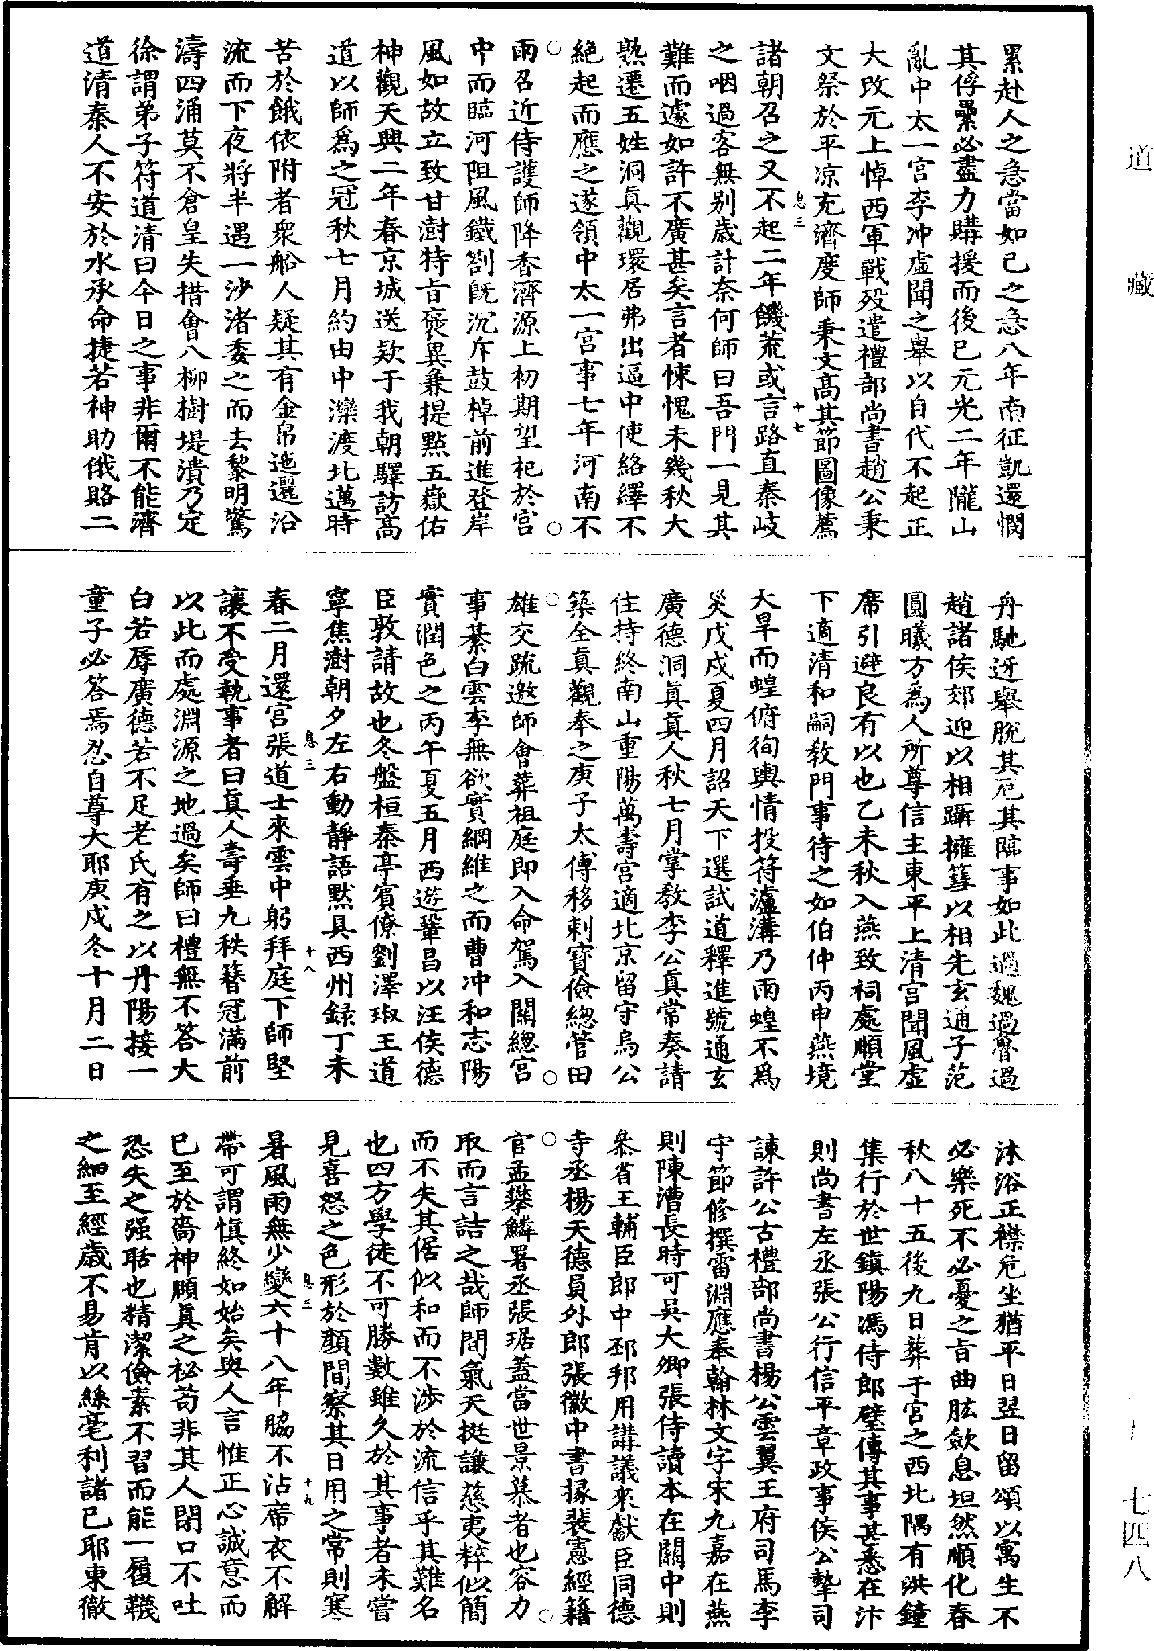 道藏
累赴人之急當如己之急八年南征凱還憫
其俘纍必盡力購援而後已元光二年隴山
亂中太一宮李冲虛聞之舉以自代不起正
大改元上悼西軍戰歿遣禮部尚書趙公秉
文祭於平凉充濟度師秉文高其節圖像薦
息三
十七
諸朝召之又不起二年饑荒或言路直秦岐
之咽過客無别歲計奈何師曰吾門一見其
難而遽如許不廣甚矣言者悚愧未幾秋大
熟遷五姓洞真觀環居弗出逼中使絡繹不
絕起而應之遂領中太一宮事七年河南不
雨召近侍護師降香濟源上初期望祀於宮
中而臨河阻風鐵劄既沉斥鼓棹前進登岸
風如故立致甘澍特旨褒異兼提點五嶽佑
神觀天興二年春京城送欵于我朝驛訪高
道以師爲之冠秋七月約由中灤渡北邁時
苦於餓依附者衆船人疑其有金帛迤邐沿
流而下夜將半遇一沙渚委之而去黎明驚
濤四涌莫不倉皇失措會八柳樹堤潰乃定
徐謂弟子符道清曰今日之事非爾不能濟
道清秦人不安於水承命捷若神助俄賂二
舟馳迓舉脫其厄其臨事如此過魏過魯過
趙諸侯郊迎以相躡擁篲以相先玄通子范
圓曦方爲人所尊信主東平上清宮聞風虛
席引避良有以也乙未秋入燕致祠處順堂
下適清和嗣教門事待之如伯仲丙申燕境
大旱而蝗俯徇輿情投符瀘溝乃雨蝗不爲
災戊戌夏四月詔天下選試道釋進號通玄
廣德洞真真人秋七月掌教李公真常奏請
住持終南山重陽萬壽宮適北京留守烏公
築全真觀奉之庚子太傅移剌寶儉總管田
雄交疏邀師會葬祖庭即入命駕入關總宮
事綦白雲李無欲實綱維之而曹冲和志陽
實潤色之丙午夏五月西遊鞏昌以汪侯德
臣敦請故也冬盤桓秦亭賓僚劉澤琡王道
寧焦澍朝夕左右動靜語默具西州録丁未
息三
十八
春二月還宮張道士來雲中躬拜庭下師堅
讓不受執事者曰真人壽垂九秩簪冠滿前
以此而處淵源之地過矣師曰禮無不答大
白若辱廣德若不足老氏有之以丹陽接一
童子必答焉忍自尊大耶庚戌冬十月二日
沐浴正襟危坐猶平日翌日留頌以寓生不
必樂死不必憂之旨曲肱歛息坦然順化春
秋八十五後九日葬于宮之西北隅有洪鐘
集行於世鎮陽馮侍郎璧傳其事甚悉在汴
則尚書左丞張公行信平章政事侯公摯司
諫許公古禮部尚書楊公雲翼王府司馬李
守節修撰雷淵應奉翰林文字宋九嘉在燕
則陳漕長時可吳大卿張侍讀本在關中則
叅省王輔臣郎中邳邦用講議來獻臣同德
寺丞楊天德員外郎張徽中書掾裴憲經籍
官孟攀鱗署丞張琚蓋當世景慕者也容力
取而言詰之哉師間氣天挺謙慈夷粹似簡
而不失其倨似和而不涉於流信乎其難名
也四方學徒不可勝數雖久於其事者未嘗
見喜怒之色形於顏間察其日用之常則寒
息三
十九
暑風雨無少變六十八年脇不沾席衣不解
帶可謂慎終如始矣與人言惟正心誠意而
已至於嗇神頤真之祕苟非其人閉口不吐
恐失之强聒也精潔儉素不習而能一履韈
之細至經歲不易肯以絲毫利諸已耶東徹
七四八